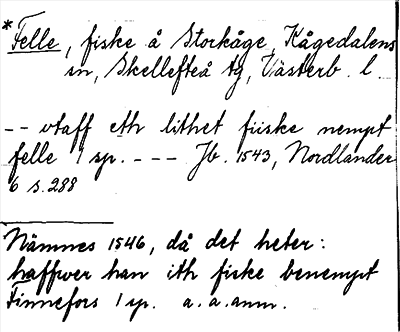 * Felle, fiske å Storkåge, Kågedalens
sn, Skellefteå tg, Västerb. l.
-- utaff eth lithet fiiske nempt
felle 1 sp. --- Jb. 1543, Nordlander
6 s. 288
Nämnes 1546, då det heter:
haffwer han ith fiske benempt
Finnefors 1 sp. a. a. anm.